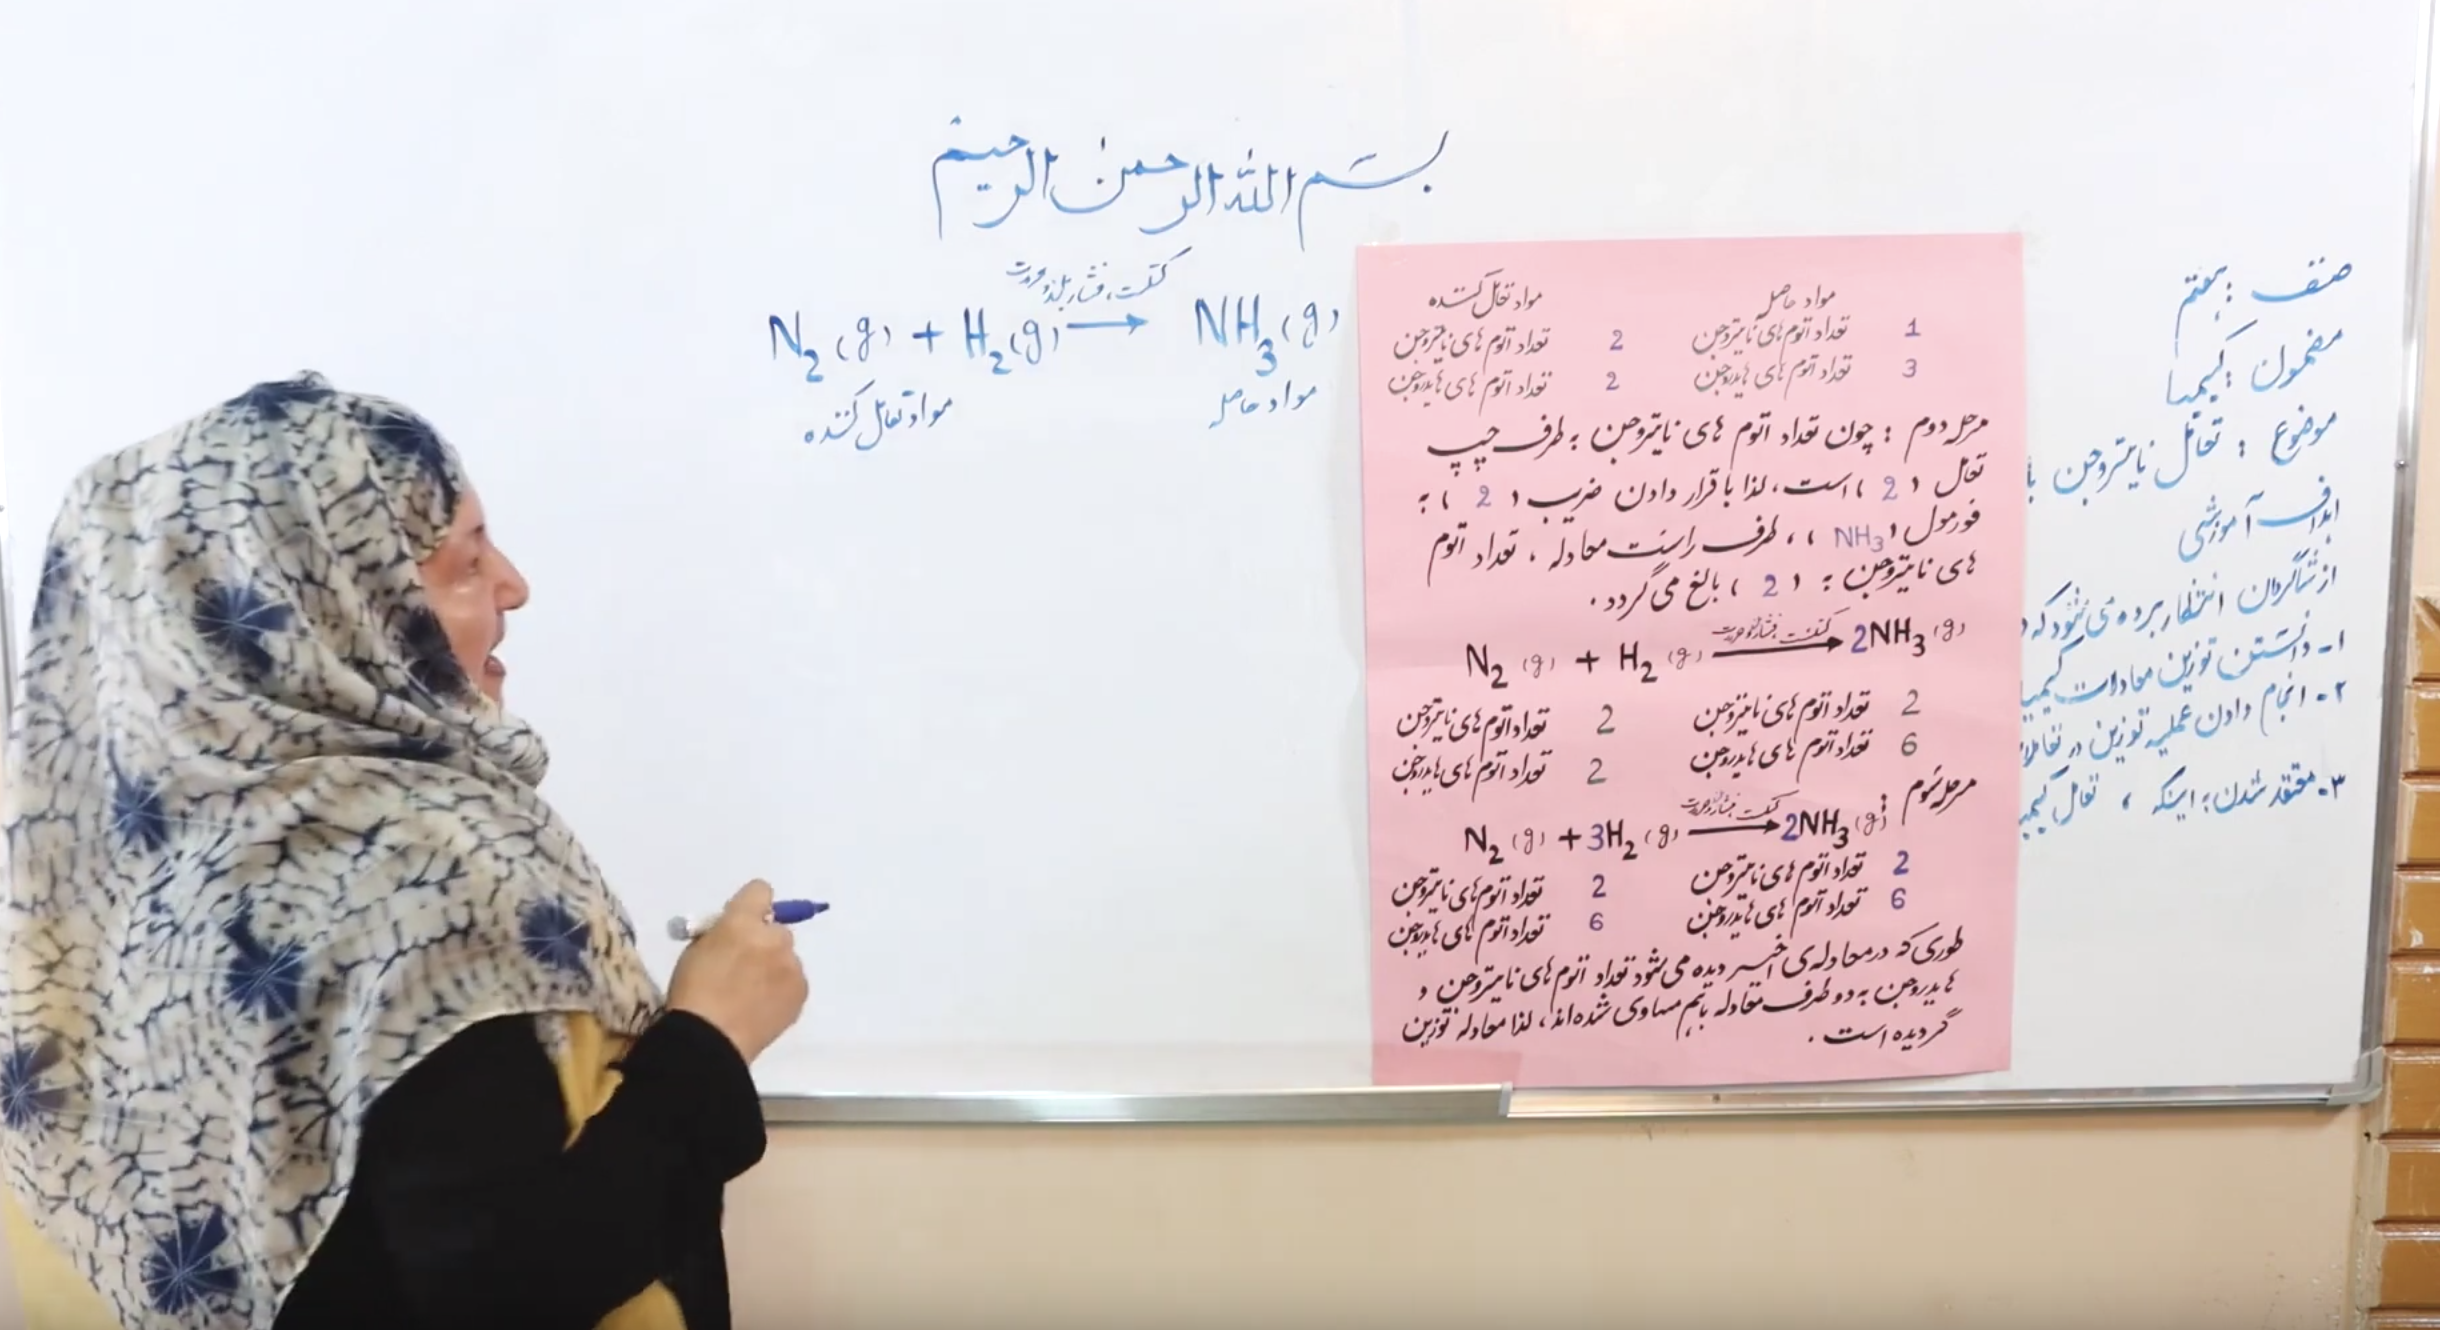 بسم الله الرحمن الرحیم
کتلست، فشار بلند و حرارت
N₂ (g) + H₂ (g) → NH₃ (g)
مواد تعامل کننده مواد حاصله
مواد تعامل کننده مواد حاصله
تعداد اتوم های نایتروجن 2 تعداد اتوم های نایتروجن 1
تعداد اتوم های هایدروجن 2 تعداد اتوم های هایدروجن 3
مرحله دوم : چون تعداد اتوم های نایتروجن به طرف چپ
تعامل ( 2 ) است، لذا با قرار دادن ضریب ( 2 ) به
فورمول ( NH₃ ) ، طرف راست معادله ، تعداد اتوم
های نایتروجن به ( 2 ) بالغ می گردد .
N₂ (g) + H₂ (g) → 2NH₃ (g)
تعداد اتوم های نایتروجن 2 تعداد اتوم های نایتروجن 2
تعداد اتوم های هایدروجن 2 تعداد اتوم های هایدروجن 6
مرحله سوم :
N₂ (g) + 3H₂ (g) → 2NH₃ (g)
تعداد اتوم های نایتروجن 2 تعداد اتوم های نایتروجن 2
تعداد اتوم های هایدروجن 6 تعداد اتوم های هایدروجن 6
طوری که در معادله ی اخیر دیده می شود تعداد اتوم های نایتروجن و
هایدروجن به دو طرف معادله باهم مساوی شده اند ، لذا معادله توزین
گردیده است .
صنف : هفتم
مضمون : کیمیا
موضوع : تعامل نایتروجن با
اهداف آموزشی
از شاگردان انتظار برده می شود که
۱- دانستن توزین معادلات کیمیا
۲- انجام دادن عملیه توزین در تعاملا
۳- معتقد شدن به اینکه ، تعامل کیمی